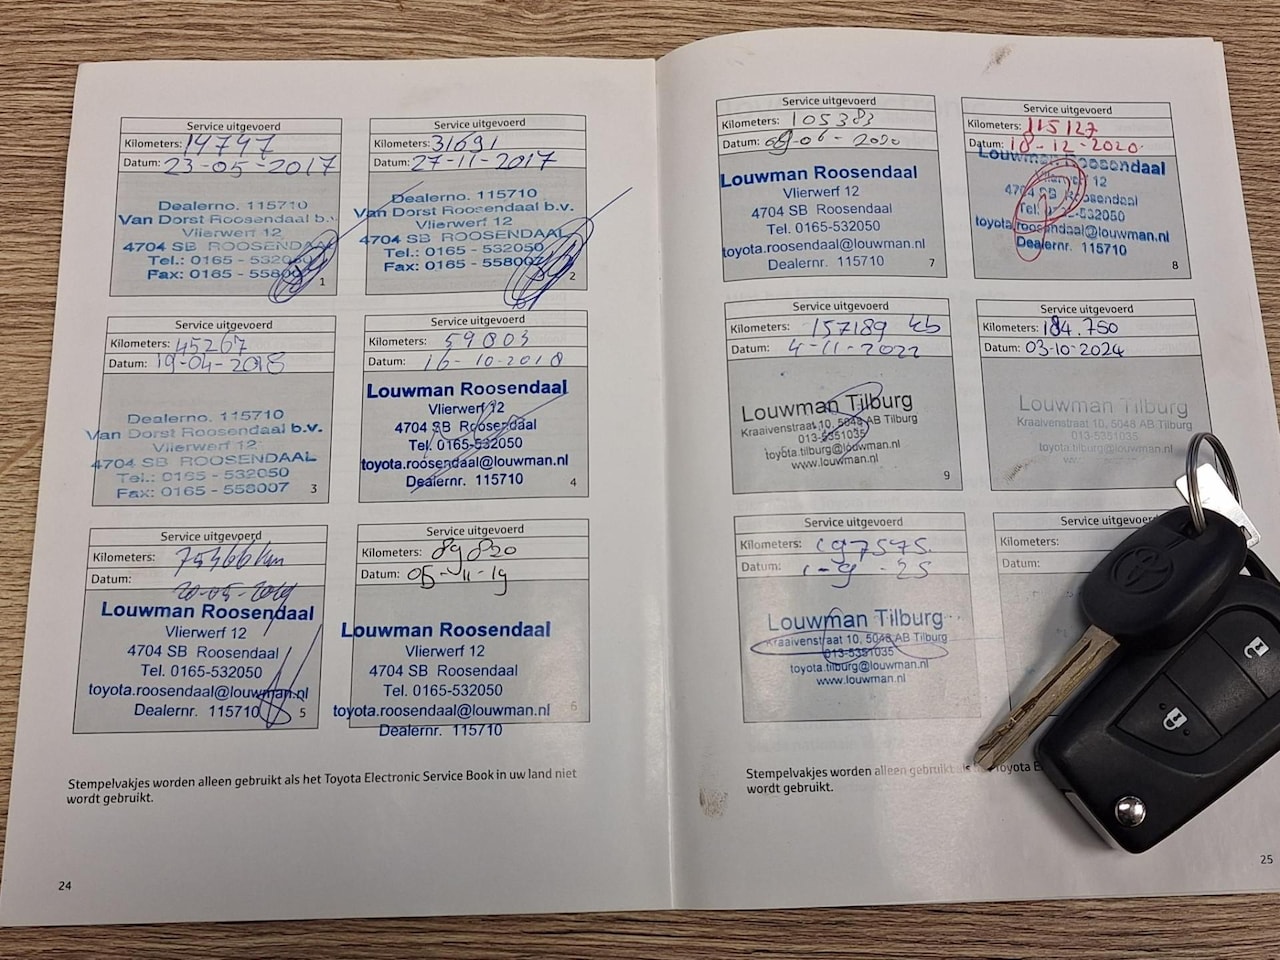 Service uitgevoerd
Kilometers: 14747
Datum: 23-05-2017
Dealerno. 115710
Van Dorst Roosendaal b.v.
Vlierwerf 12
4704 SB ROOSENDAAL
Tel.: 0165 - 532050
Fax: 0165 - 558007
1
Service uitgevoerd
Kilometers: 31691
Datum: 27-11-2017
Dealerno. 115710
Van Dorst Roosendaal b.v.
Vlierwerf 12
4704 SB ROOSENDAAL
Tel.: 0165 - 532050
Fax: 0165 - 558007
2
Service uitgevoerd
Kilometers: 45267
Datum: 19-04-2018
Dealerno. 115710
Van Dorst Roosendaal b.v.
Vlierwerf 12
4704 SB ROOSENDAAL
Tel.: 0165 - 532050
Fax: 0165 - 558007
3
Service uitgevoerd
Kilometers: 59803
Datum: 16-10-2018
Louwman Roosendaal
Vlierwerf 12
4704 SB Roosendaal
Tel. 0165-532050
toyota.roosendaal@louwman.nl
Dealernr. 115710
4
Service uitgevoerd
Kilometers: 75466 km
Datum: 20-05-2019
Louwman Roosendaal
Vlierwerf 12
4704 SB Roosendaal
Tel. 0165-532050
toyota.roosendaal@louwman.nl
Dealernr. 115710
5
Service uitgevoerd
Kilometers: 89820
Datum: 05-11-19
Louwman Roosendaal
Vlierwerf 12
4704 SB Roosendaal
Tel. 0165-532050
toyota.roosendaal@louwman.nl
6
Dealernr. 115710
Stempelvakjes worden alleen gebruikt als het Toyota Electronic Service Book in uw land niet
wordt gebruikt.
24
Service uitgevoerd
Kilometers: 105383
Datum: 09-06-2020
Louwman Roosendaal
Vlierwerf 12
4704 SB Roosendaal
Tel. 0165-532050
toyota.roosendaal@louwman.nl
Dealernr. 115710
7
Service uitgevoerd
Kilometers: 115127
Datum: 18-12-2020
Louwman Roosendaal
Vlierwerf 12
4704 SB Roosendaal
Tel. 0165-532050
toyota.roosendaal@louwman.nl
Dealernr. 115710
8
Service uitgevoerd
Kilometers: 157189
Datum: 4-11-2022
Louwman Tilburg
Kraaivenstraat 10, 5048 AB Tilburg
013-5351035
toyota.tilburg@louwman.nl
www.louwman.nl
9
Service uitgevoerd
Kilometers: 184.750
Datum: 03-10-2024
Louwman Tilburg
Kraaivenstraat 10, 5048 AB Tilburg
013-5351035
toyota.tilburg@louwman.nl
Service uitgevoerd
Kilometers: 197575
Datum: 1-9-25
Louwman Tilburg
Kraaivenstraat 10, 5048 AB Tilburg
013-5351035
toyota.tilburg@louwman.nl
www.louwman.nl
Service
Kilometers:
Datum:
Stempelvakjes worden alleen gebruikt als het Toyota
wordt gebruikt.
25